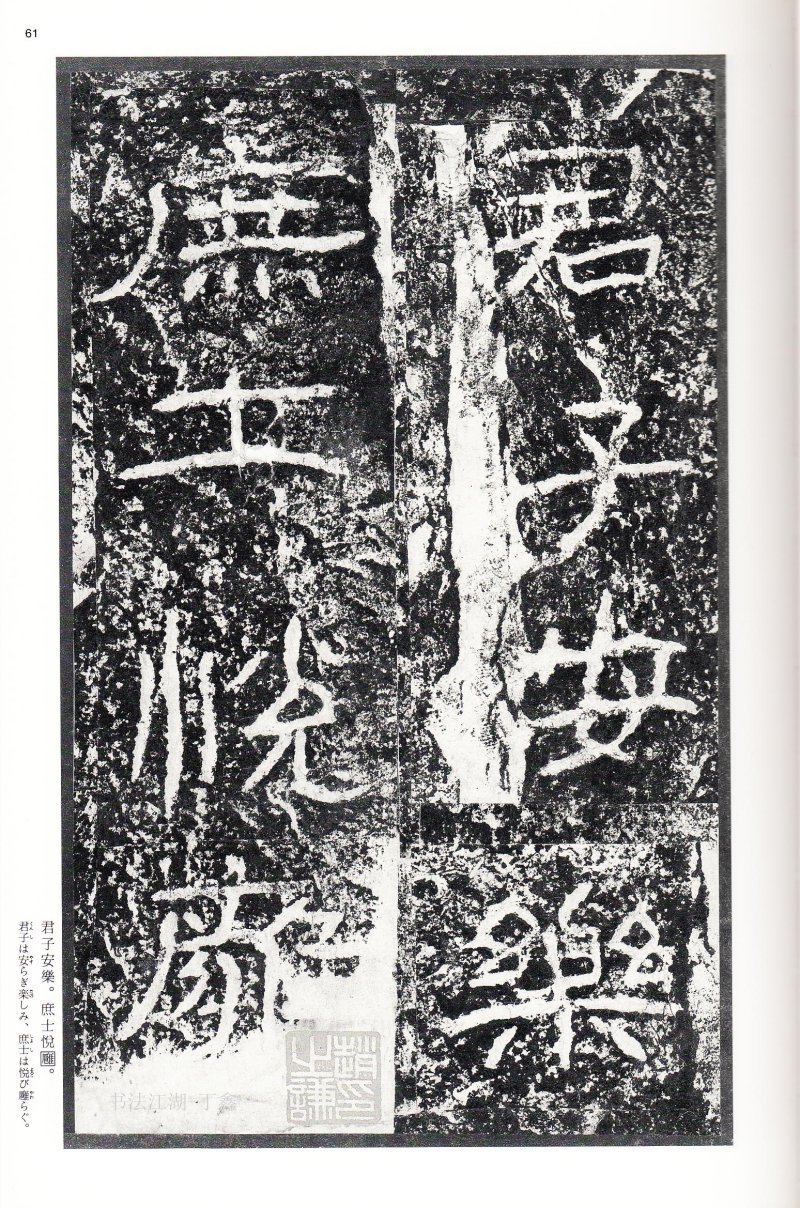 61
君子安樂
庶士悅雍
君子安樂。庶士悅雝。
君子は安らぎ楽しみ、庶士は悦び雝らぐ。
书法江湖·丁鑫